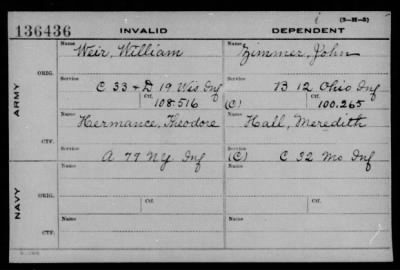 (3-H-3)
136436 INVALID DEPENDENT
Name Name
Weir, William Zimmer, John
ORIG.
Service Service
C 33 + D 19 Wis Inf B 12 Ohio Inf
ARMY
Ctf. Ctf.
108.516 (C) 100.265
Name Name
Hermance, Theodore Hall, Meredith
CTF.
Service Service
A 77 NY Inf (C) C 32 Mo Inf
Name Name
ORIG.
NAVY
Ctf. Ctf.
Name Name
CTF.